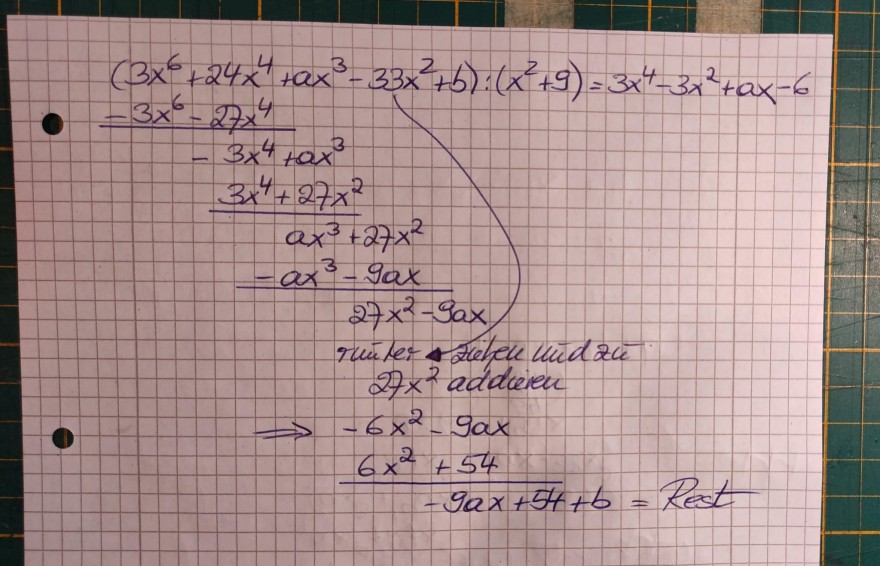 (3x⁶ + 24x⁴ + ax³ - 33x² + b) : (x² + 9) = 3x⁴ - 3x² + ax - 6
- 3x⁶ - 27x⁴
- 3x⁴ + ax³
3x⁴ + 27x²
ax³ + 27x²
- ax³ - 9ax
27x² - 9ax
runter ziehen und zu
27x² addieren
⇒ - 6x² - 9ax
6x² + 54
- 9ax + 54 + b = Rest